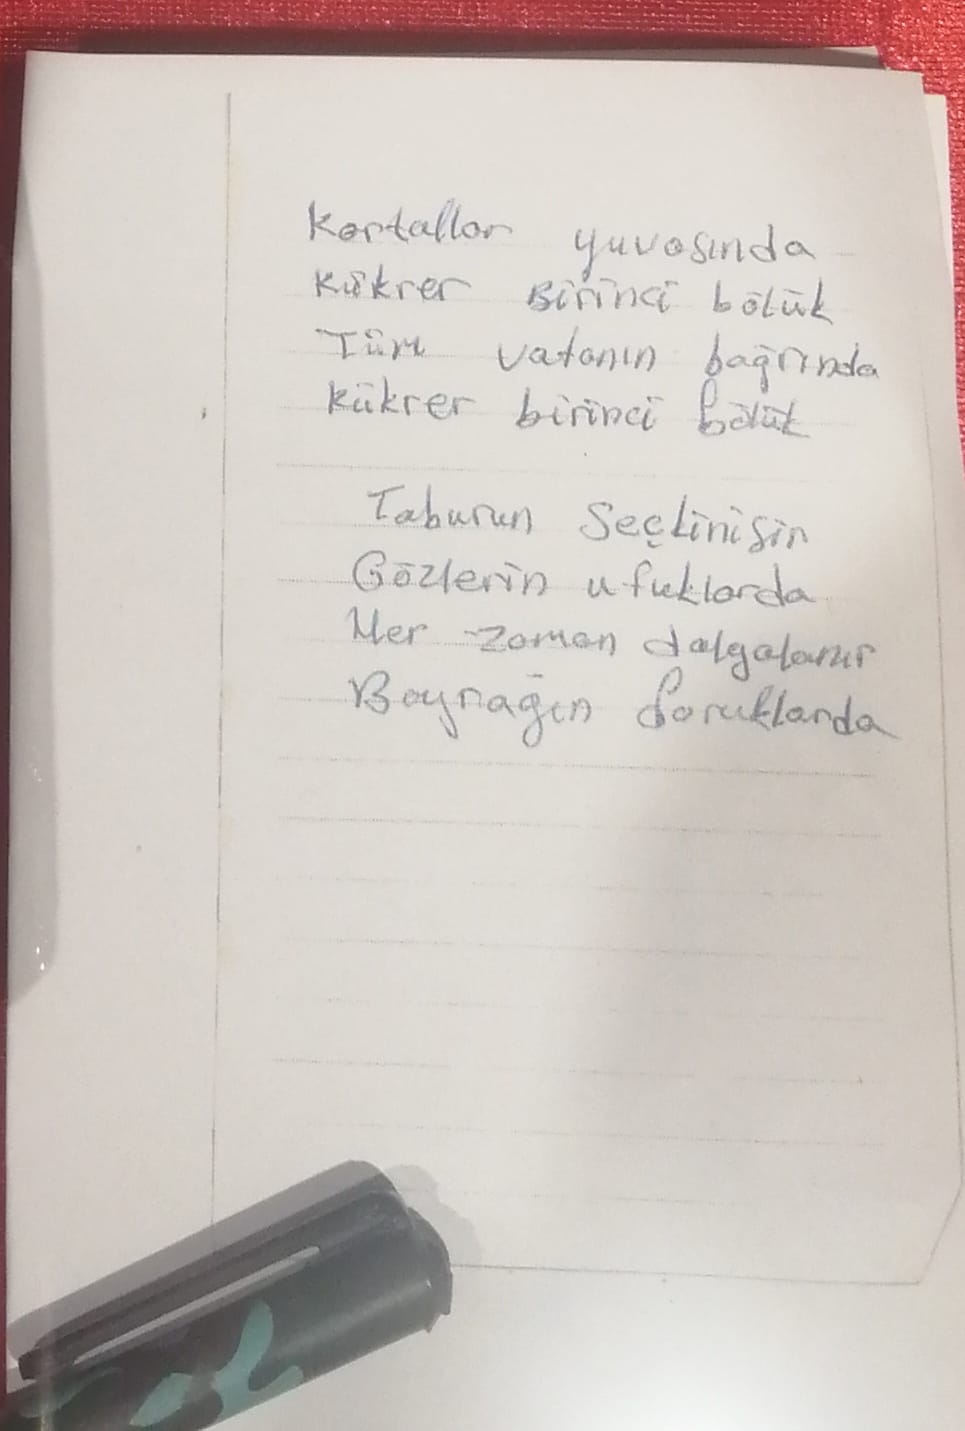 Kartallar yuvasında
Kükrer Birinci bölük
Tüm vatanın bağrında
Kükrer birinci bölük
Taburun Seçkinisin
Gözlerin ufuklarda
Her zaman dalgalanır
Bayrağın doruklarda